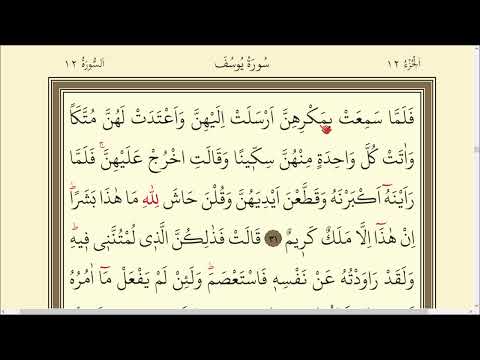 اَلسُّورَةُ ١٢ سُورَةُ يُوسُفَ اَلْجُزْءُ ١٢
فَلَمَّا سَمِعَتْ بِمَكْرِهِنَّ اَرْسَلَتْ اِلَيْهِنَّ وَاَعْتَدَتْ لَهُنَّ مُتَّكَـًٔا
وَاٰتَتْ كُلَّ وَاحِدَةٍ مِنْهُنَّ سِكّ۪ينًا وَقَالَتِ اخْرُجْ عَلَيْهِنَّۚ فَلَمَّا
رَاَيْنَهُٓ اَكْبَرْنَهُ وَقَطَّعْنَ اَيْدِيَهُنَّ وَقُلْنَ حَاشَ لِلّٰهِ مَا هٰذَا بَشَرًاۜ
اِنْ هٰذَٓا اِلَّا مَلَكٌ كَر۪يمٌ ٣١ قَالَتْ فَذٰلِكُنَّ الَّذ۪ي لُمْتُنَّن۪ي ف۪يهِۜ
وَلَقَدْ رَاوَدْتُهُ عَنْ نَفْسِه۪ فَاسْتَعْصَمَۜ وَلَئِنْ لَمْ يَفْعَلْ مَٓا اٰمُرُهُ